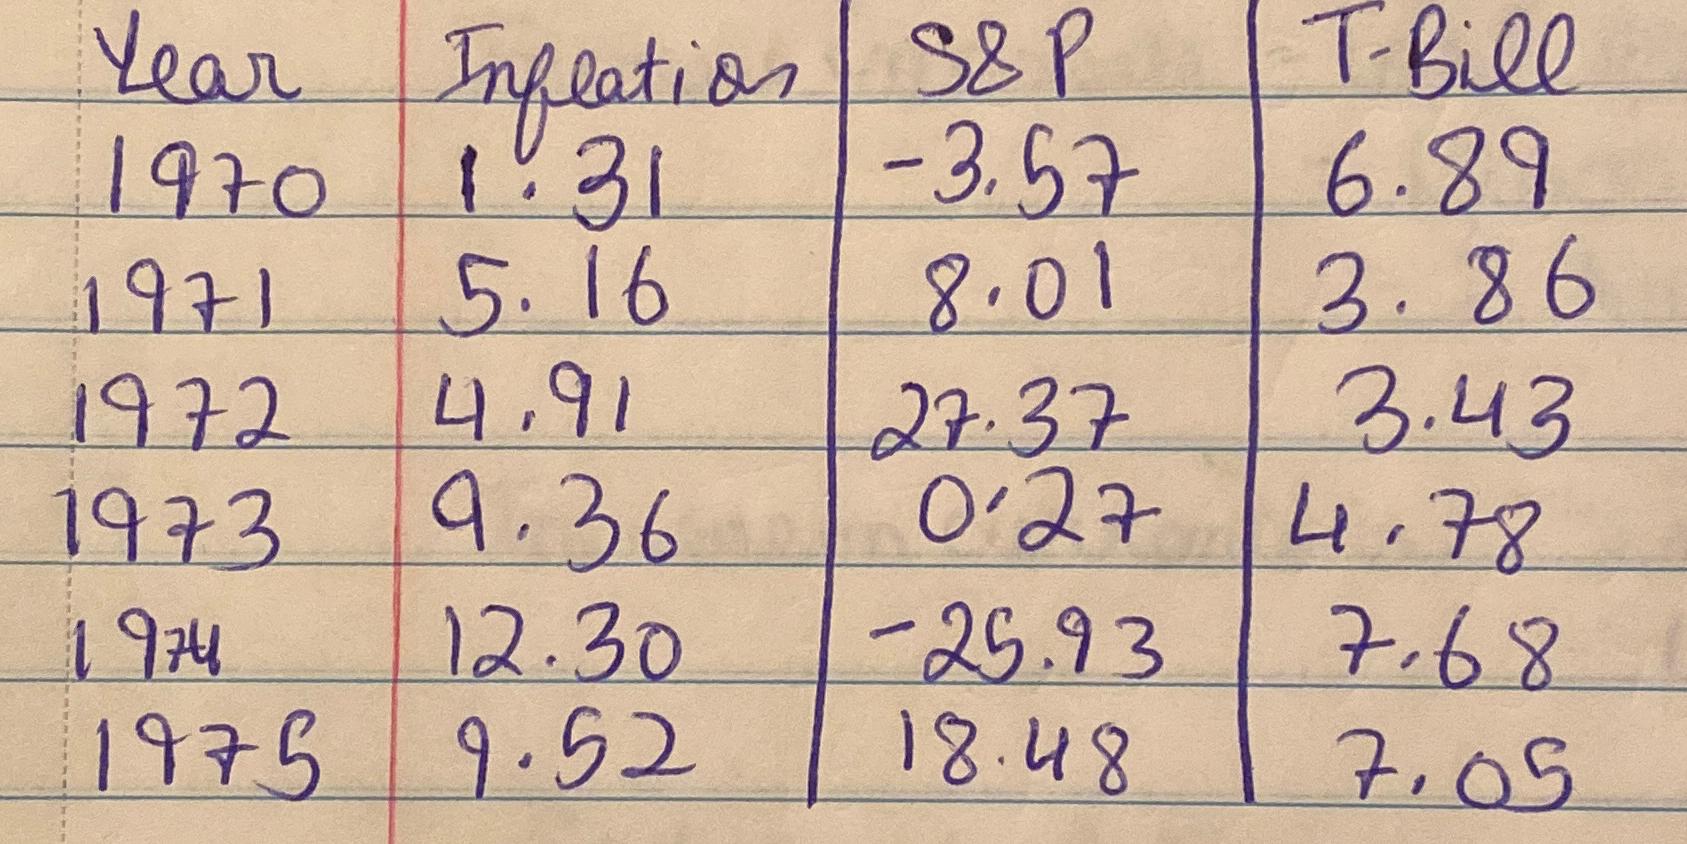 Year Inflation S&P T-Bill
1970 1.31 -3.57 6.89
1971 5.16 8.01 3.86
1972 4.91 27.37 3.43
1973 9.36 0.27 4.78
1974 12.30 -25.93 7.68
1975 9.52 18.48 7.05